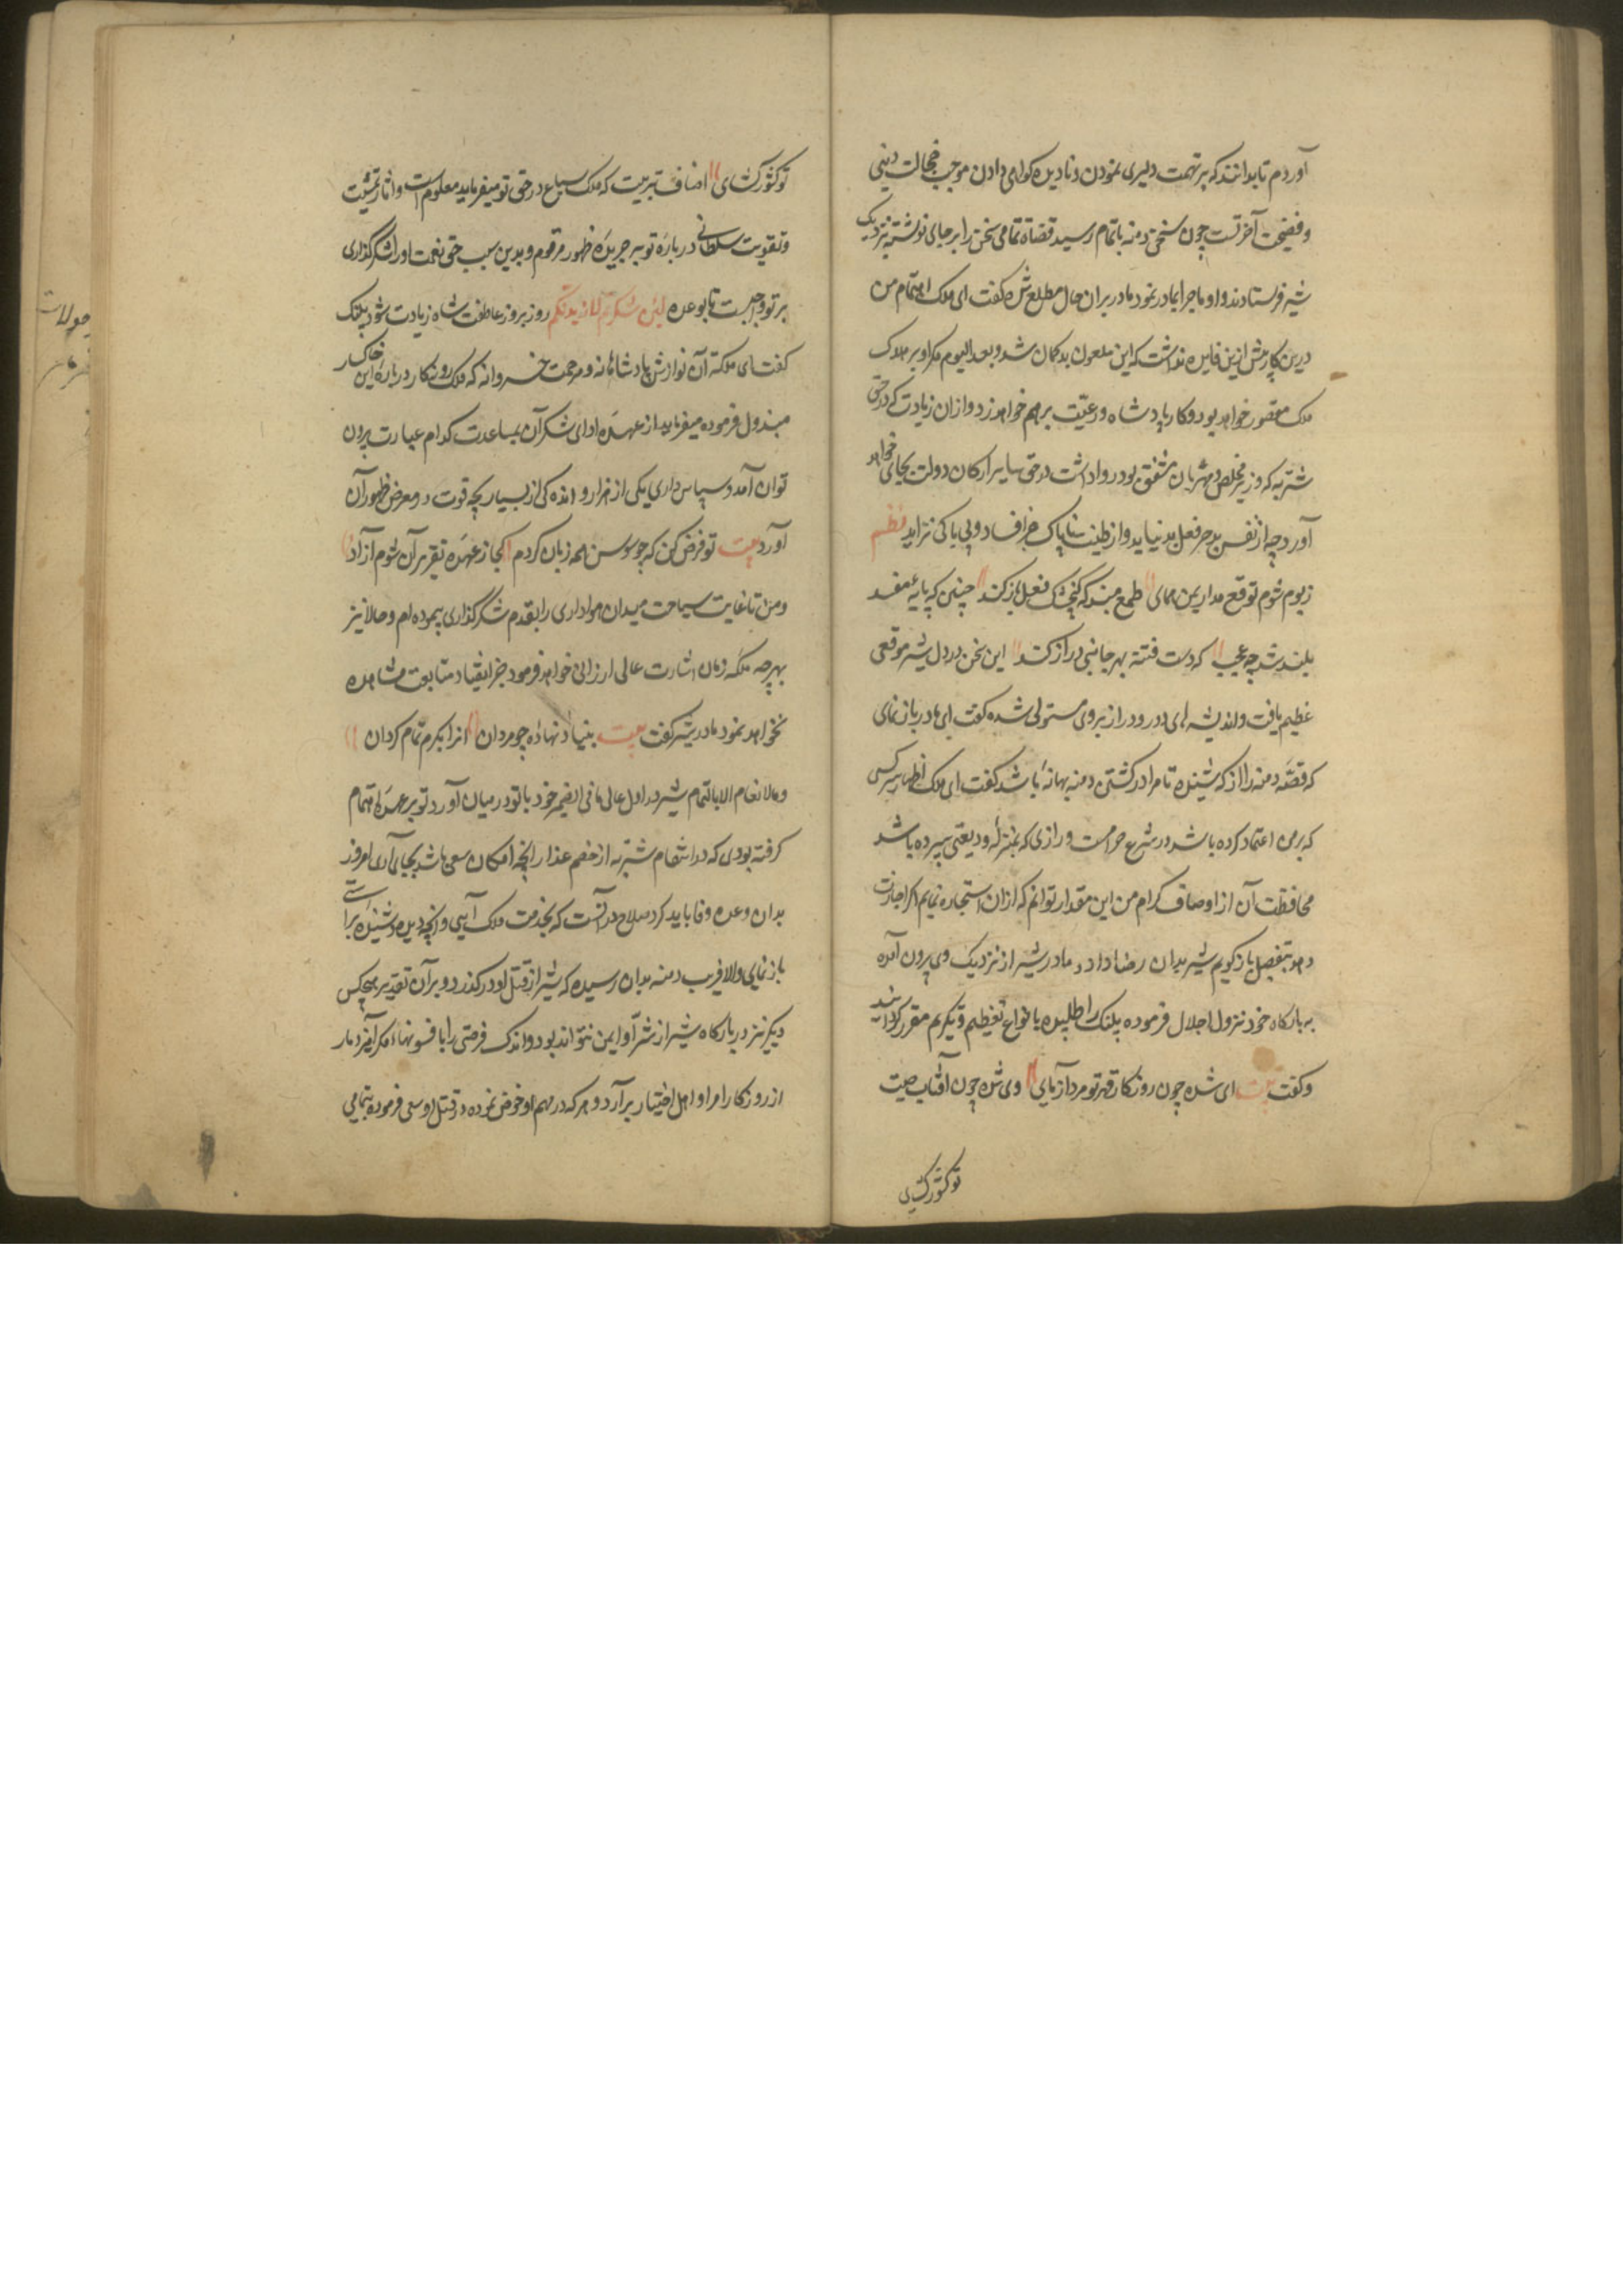 آوردم تا بدانند که بر تهمت دلیری نمودن و نادیده کواهی دادن موجب خجالت دنیی
و فضیحت آخرتست چون سخن دمنه باتمام رسید قضاة تمامی سخن را بر جای نوشته نزدیک
شیر فرستادند و او ماجرا بمادر نمود مادر بر ان حال مطلع شده کفت ای ملک اهتمام من
درین کار بیش ازین فایده نداشت که این ملعون بدکمان شد و بعد الیوم مکر او بر هلاک
ملک مقصور خواهد بود و کار پادشاه و رعیّت بر هم خواهد زد و ازان زیادت که در حق
شتربه که وزیر مخلص و مهربان مشفق بود روا داشت در حق سایر ارکان دولت بجای خواهد
آورد چه از نفس بد جز فعل بد نیاید و از طینت ناپاک جز فساد و بی باکی نزاید نظم
ز بوم شوم توقع مدار یمن همای طمع مبند که کنجشک فعل باز کند چنین که پایه مفسد
بلند شد چه عجب که دست فتنه بهر جانبی دراز کند این سخن در دل شیر موقعی
عظیم یافت و اندیشه ای دور و دراز بر وی مستولی شده کفت ای مادر باز نمای
که قصّه دمنه را از که شنیده تا مرا در کشتن دمنه بهانهٔ باشد کفت ای ملک اظهار سر کسی
که بر من اعتماد کرده باشد در شرع حرامست و رازی که بمنزلهٔ ودیعتی سپرده باشد
محافظت آن از اوصاف کرام من این مقدار توانم که ازان استجازه نمایم اکر اجازت
دهد بتفصیل باز کویم شیر بدان رضا داد و مادر شیر از نزدیک وی بیرون آمده
به بارکاه خود نزول اجلال فرموده پلنک را طلبیده بانواع تعظیم و تکریم مقرر کردانید
و کفت بیت ای شده چون روزکار قهر تو مرد آزمای وی شده چون آفتاب صیت
تو کشورکشای
تو کشورکشای اصناف تربیت که ملک سباع در حق تو میفرماید معلوم است و اثار تمشیت
و تقویت سلطانی در بارهٔ تو بر جریدهٔ ظهور مرقوم و بدین سبب حق نعمت او را شکر کذاری
بر تو واجبست تا بوعده لئن شکرتم لازیدنکم روز بروز عاطفت شاه زیادت شود پلنک
کفت ای ملکه آن نوازش پادشاهانه و مرحمت خسروانه که ملک روزکار در باره این خاکسار
مبذول فرموده میفرماید از عهدهٔ ادای شکر آن بمساعدت کدام عبارت بیرون
توان آمد و سپاس داری یکی از هزار و اندکی از بسیار بچه قوت در معرض ظهور آن
آورد بیت تو فرض کن که چو سوسن همه زبان کردم کجا ز عهدهٔ تقریر آن شوم آزاد
و من تا غایت سیاحت میدان هواداری را بقدم شکر کذاری پیموده ام و حالا نیز
بهر چه ملکه زمان اشارت عالی ارزانی خواهد فرمود جز انقیاد و متابعت مشاهده
نخواهد نمود مادر شیر کفت بیت بنیاد نهادهٔ چو مردان انرا بکرم تمام کردان
و الانعام الا بالتمام شیر در اول حال ما فی الضمیر خود با تو در میان آورد و تو بر عهدهٔ اهتمام
کرفته بودی که در انتقام شتربه از خصم غدار انچه امکان سعی باشد بجای آری امروز
بدان وعده وفا باید کرد صلاح در آنست که بخدمت ملک آیی و انچه دیده و شنیدهٔ براستی
باز نمایی و الا فریب دمنه بدان رسیده که شیر از قتل او در کذرد و بر آن تقدیر هیچکس
دیکر نیز در بارکاه شیر از شرّ او ایمن نتواند بود و اندک فرصتی را بافسونهاء مکر آمیز دمار
از روزکار امرا و اهل اختیار بر آرد و هر که در مهم او خوض نموده و در قتل او سعی فرموده بتمامی